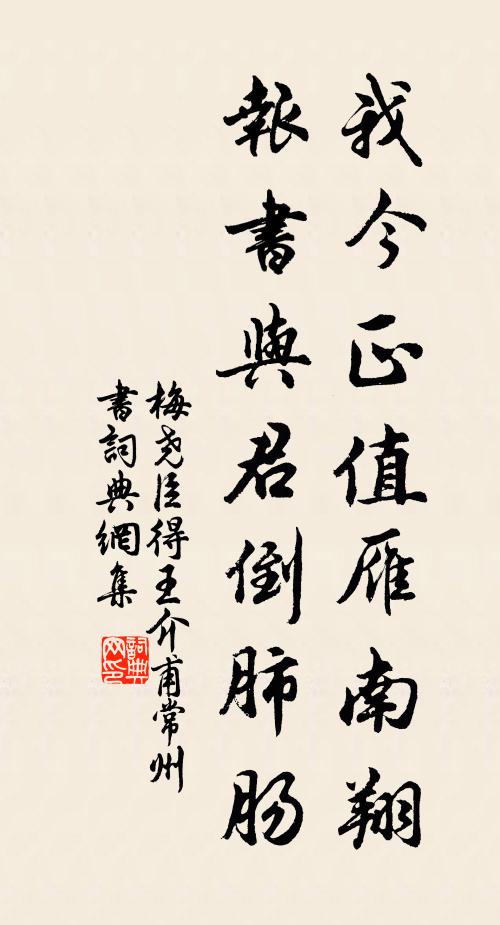 我今正值雁南翔
報書與君倒肺腸
梅尧臣得王介甫常州
書詞典網集
詞典網印